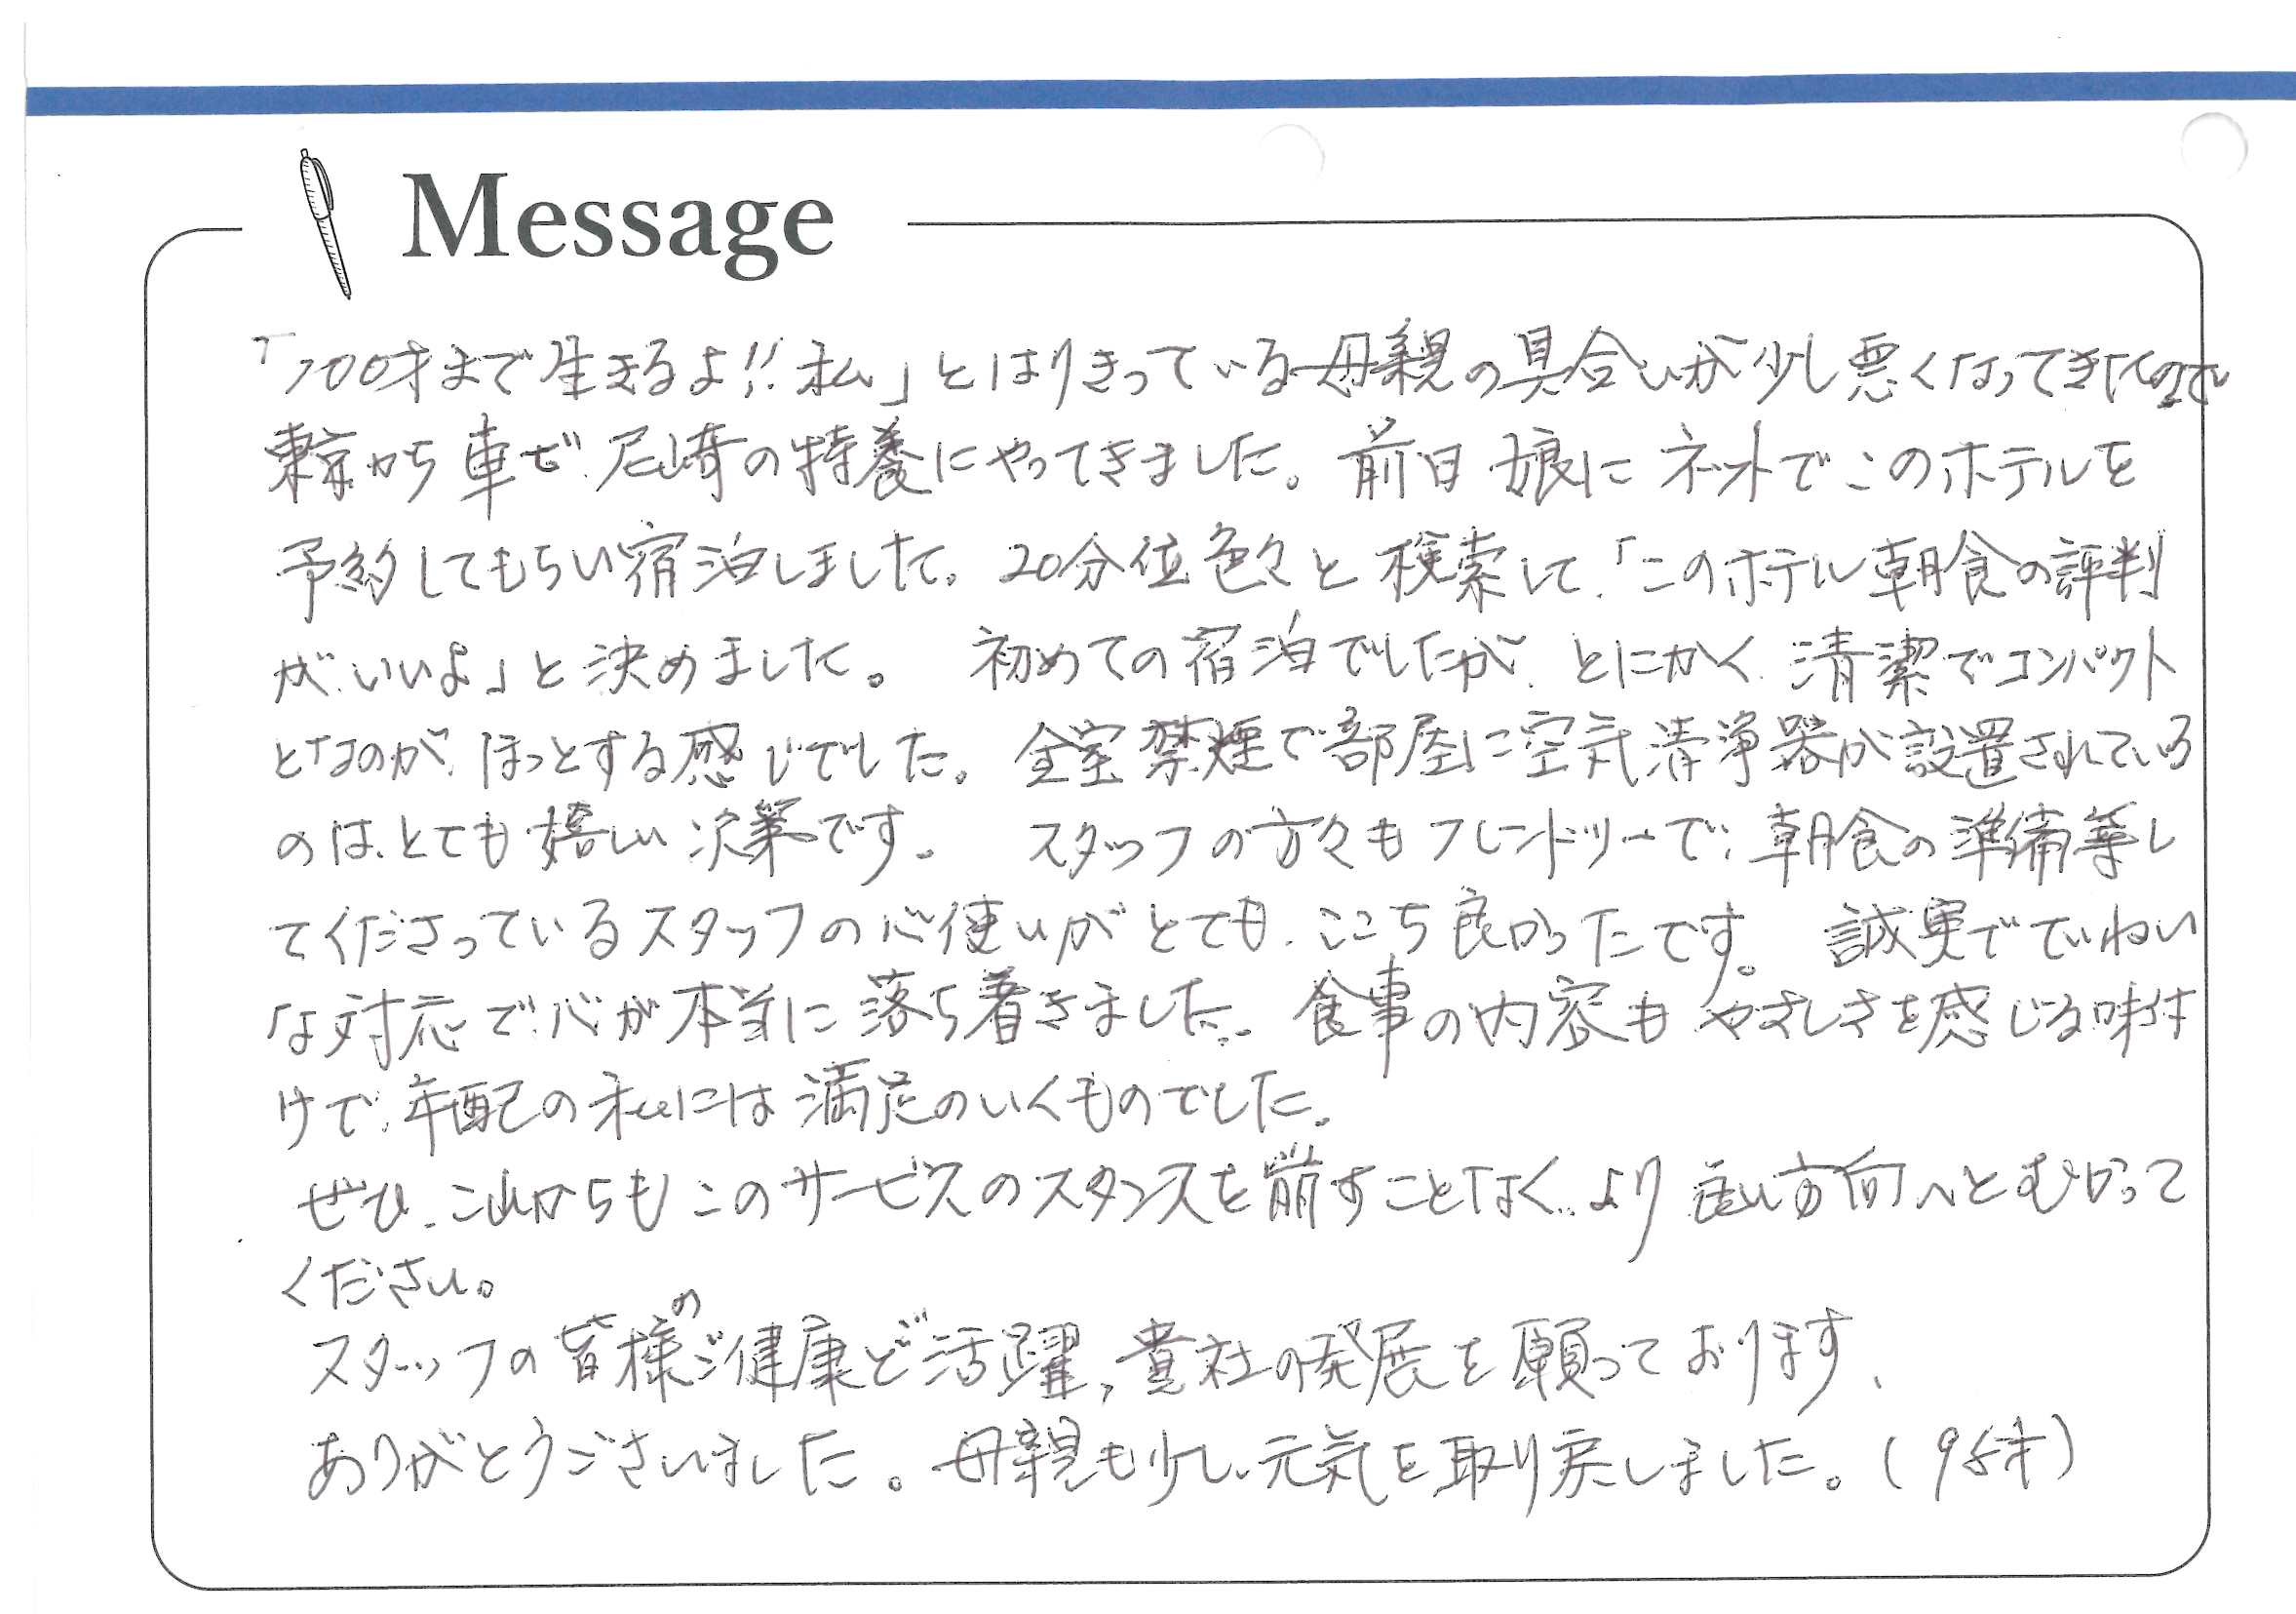 Message
「100才まで生きるよ!!私」とはりきっている母親の具合いが少し悪くなってきたので
東京から車で、尼崎の特養にやってきました。前日娘にネットでこのホテルを
予約してもらい宿泊しました。20分位色々と検索して、「このホテル朝食の評判
が、いいよ」と決めました。 初めての宿泊でしたが、とにかく、清潔でコンパクト
となのが、ほっとする感じでした。全室禁煙で部屋に空気清浄器が設置されている
のは、とても嬉しい決策です。 スタッフの方々もフレンドリーで、朝食の準備等し
てくださっているスタッフの心使いがとても、ここち良かったです。 誠実でていねい
な対応で、心が本当に落ち着きました。食事の内容もやさしさを感じる味付
けで、年配の私には満足のいくものでした。
ぜひ、これからもこのサービスのスタンスを崩すことなく、より良い方向へとむかって
ください。
スタッフの皆様のご健康とご活躍,貴社の発展を願っております、
ありがとうございました。母親も少し、元気を取り戻しました。(95才)